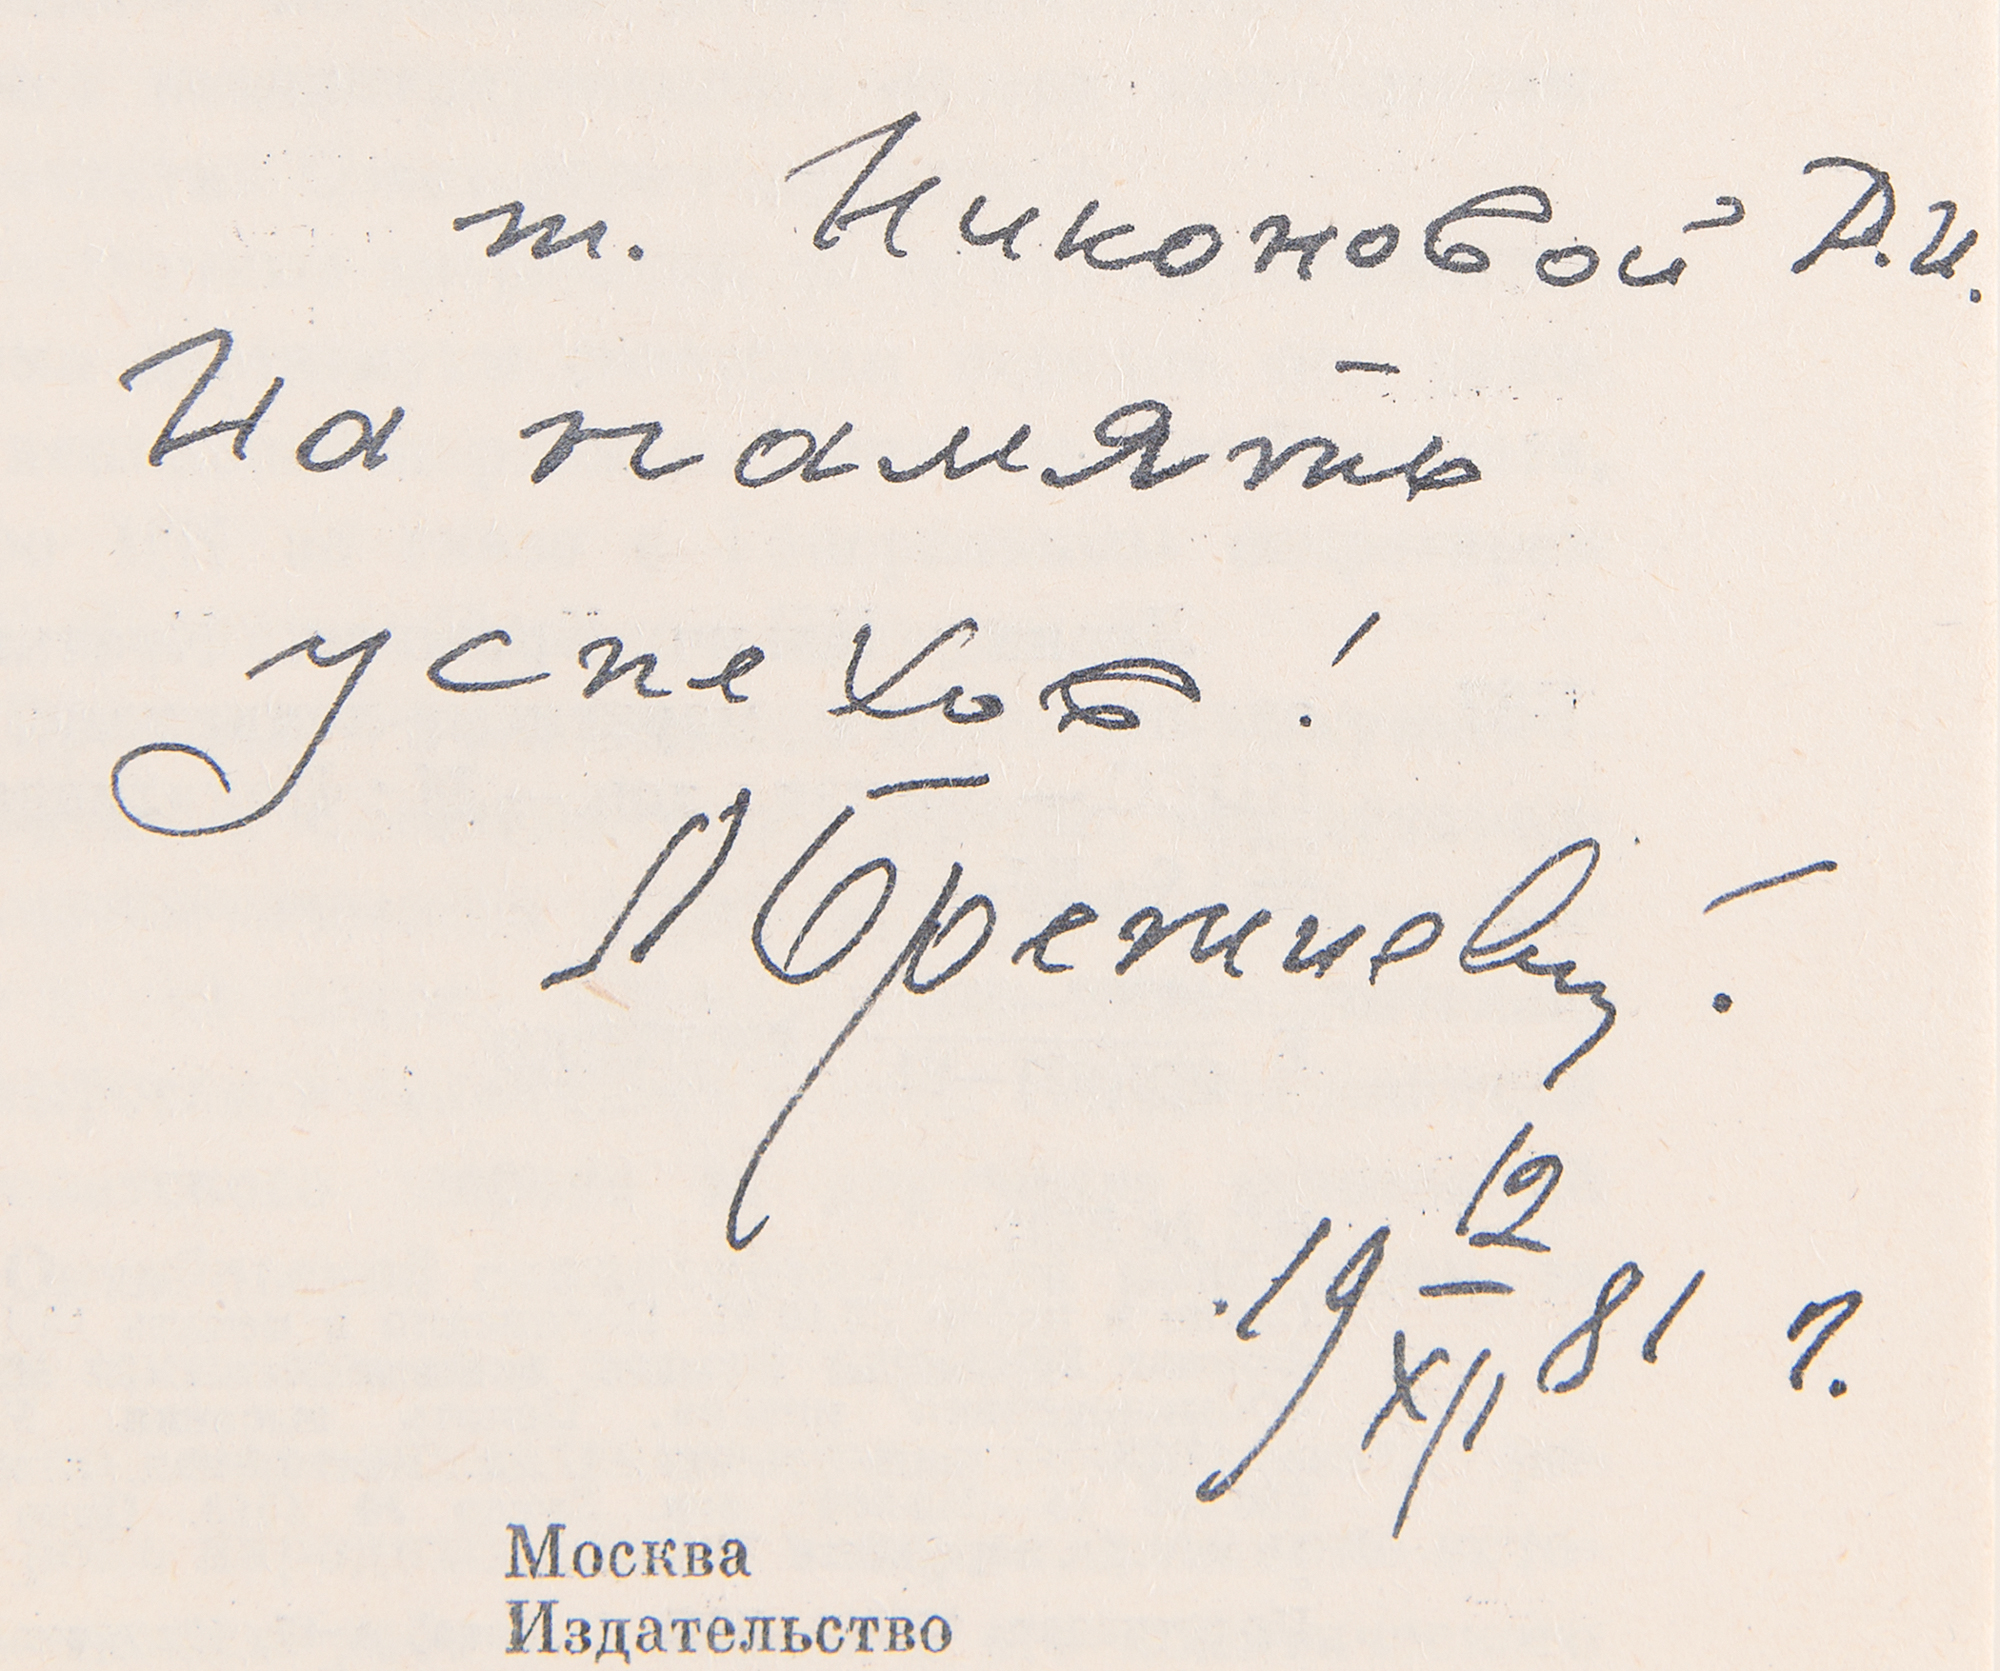 т. Никоновой Д.И.
На память
успехов!
Л Брежнев.
19 12/XII 81 г.
Москва
Издательство